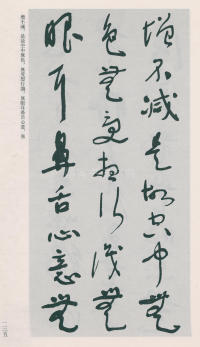 增不減是故空中無
色無受想行識無
眼耳鼻舌心意無
增不減，是故空中無色，無受想行識，無眼耳鼻舌心意，無
一三五